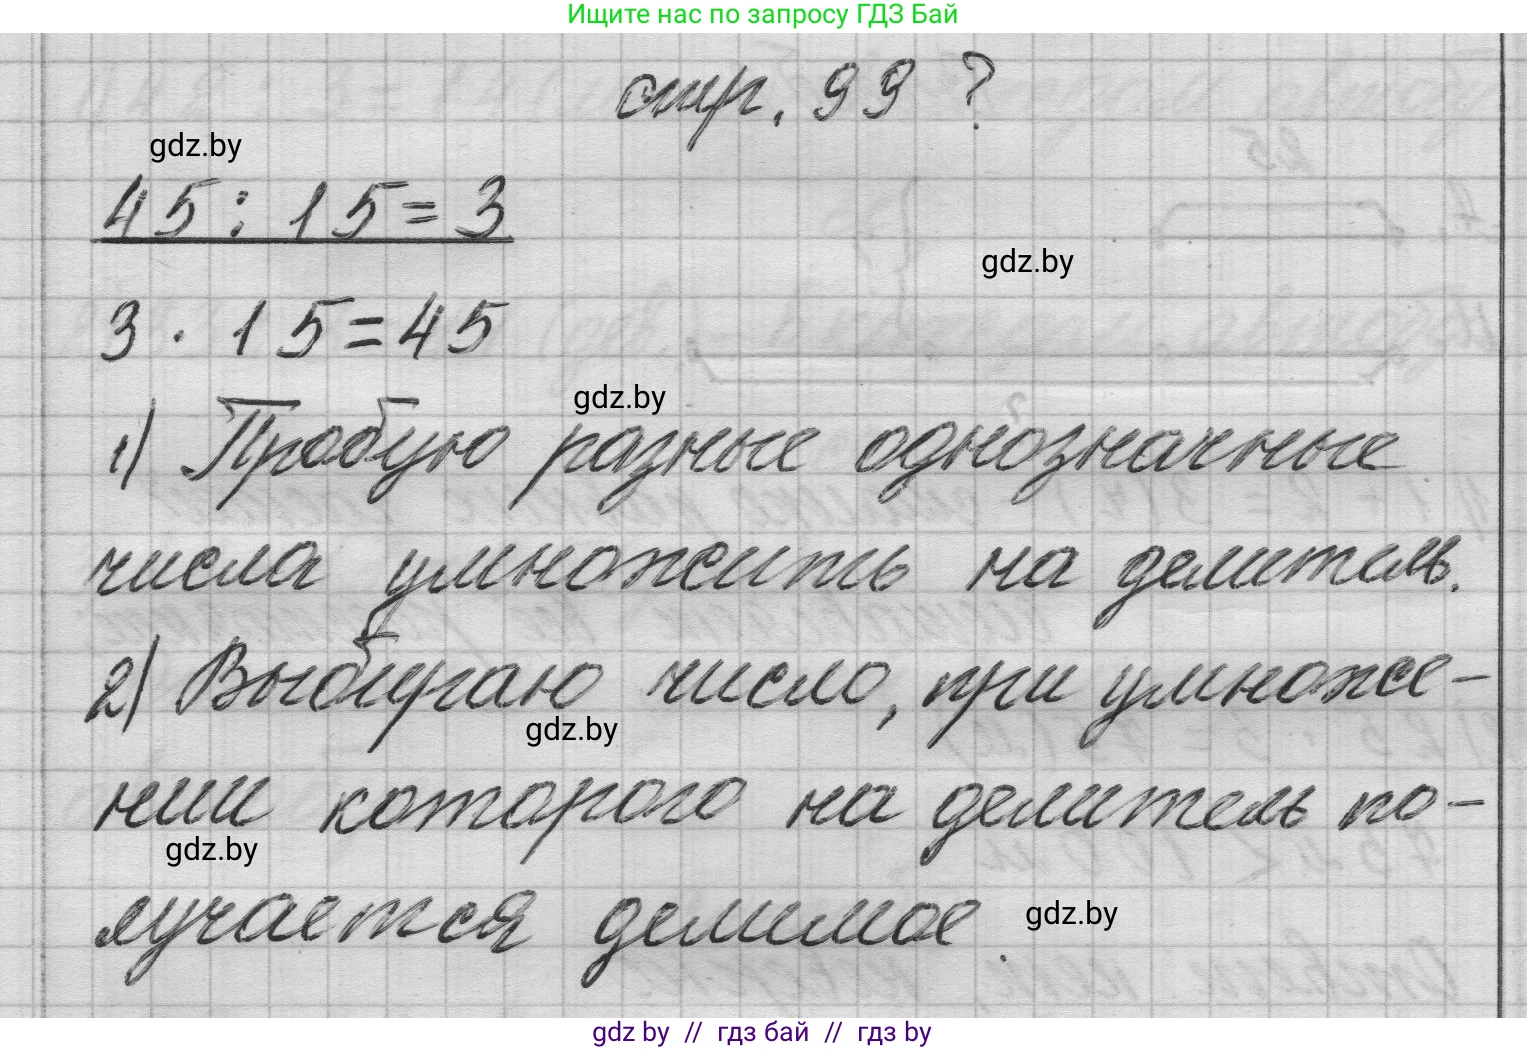 Ищите нас по запросу ГДЗ Бай
стр. 99 ?
gdz.by
45 : 15 = 3
gdz.by
3 · 15 = 45
gdz.by
1) Пробую разные однозначные
числа умножить на делитель.
2) Выбираю число, при умноже-
gdz.by
нии которого на делитель по-
gdz.by
лучается делимое.
gdz.by
gdz by // гдз бай // гдз by